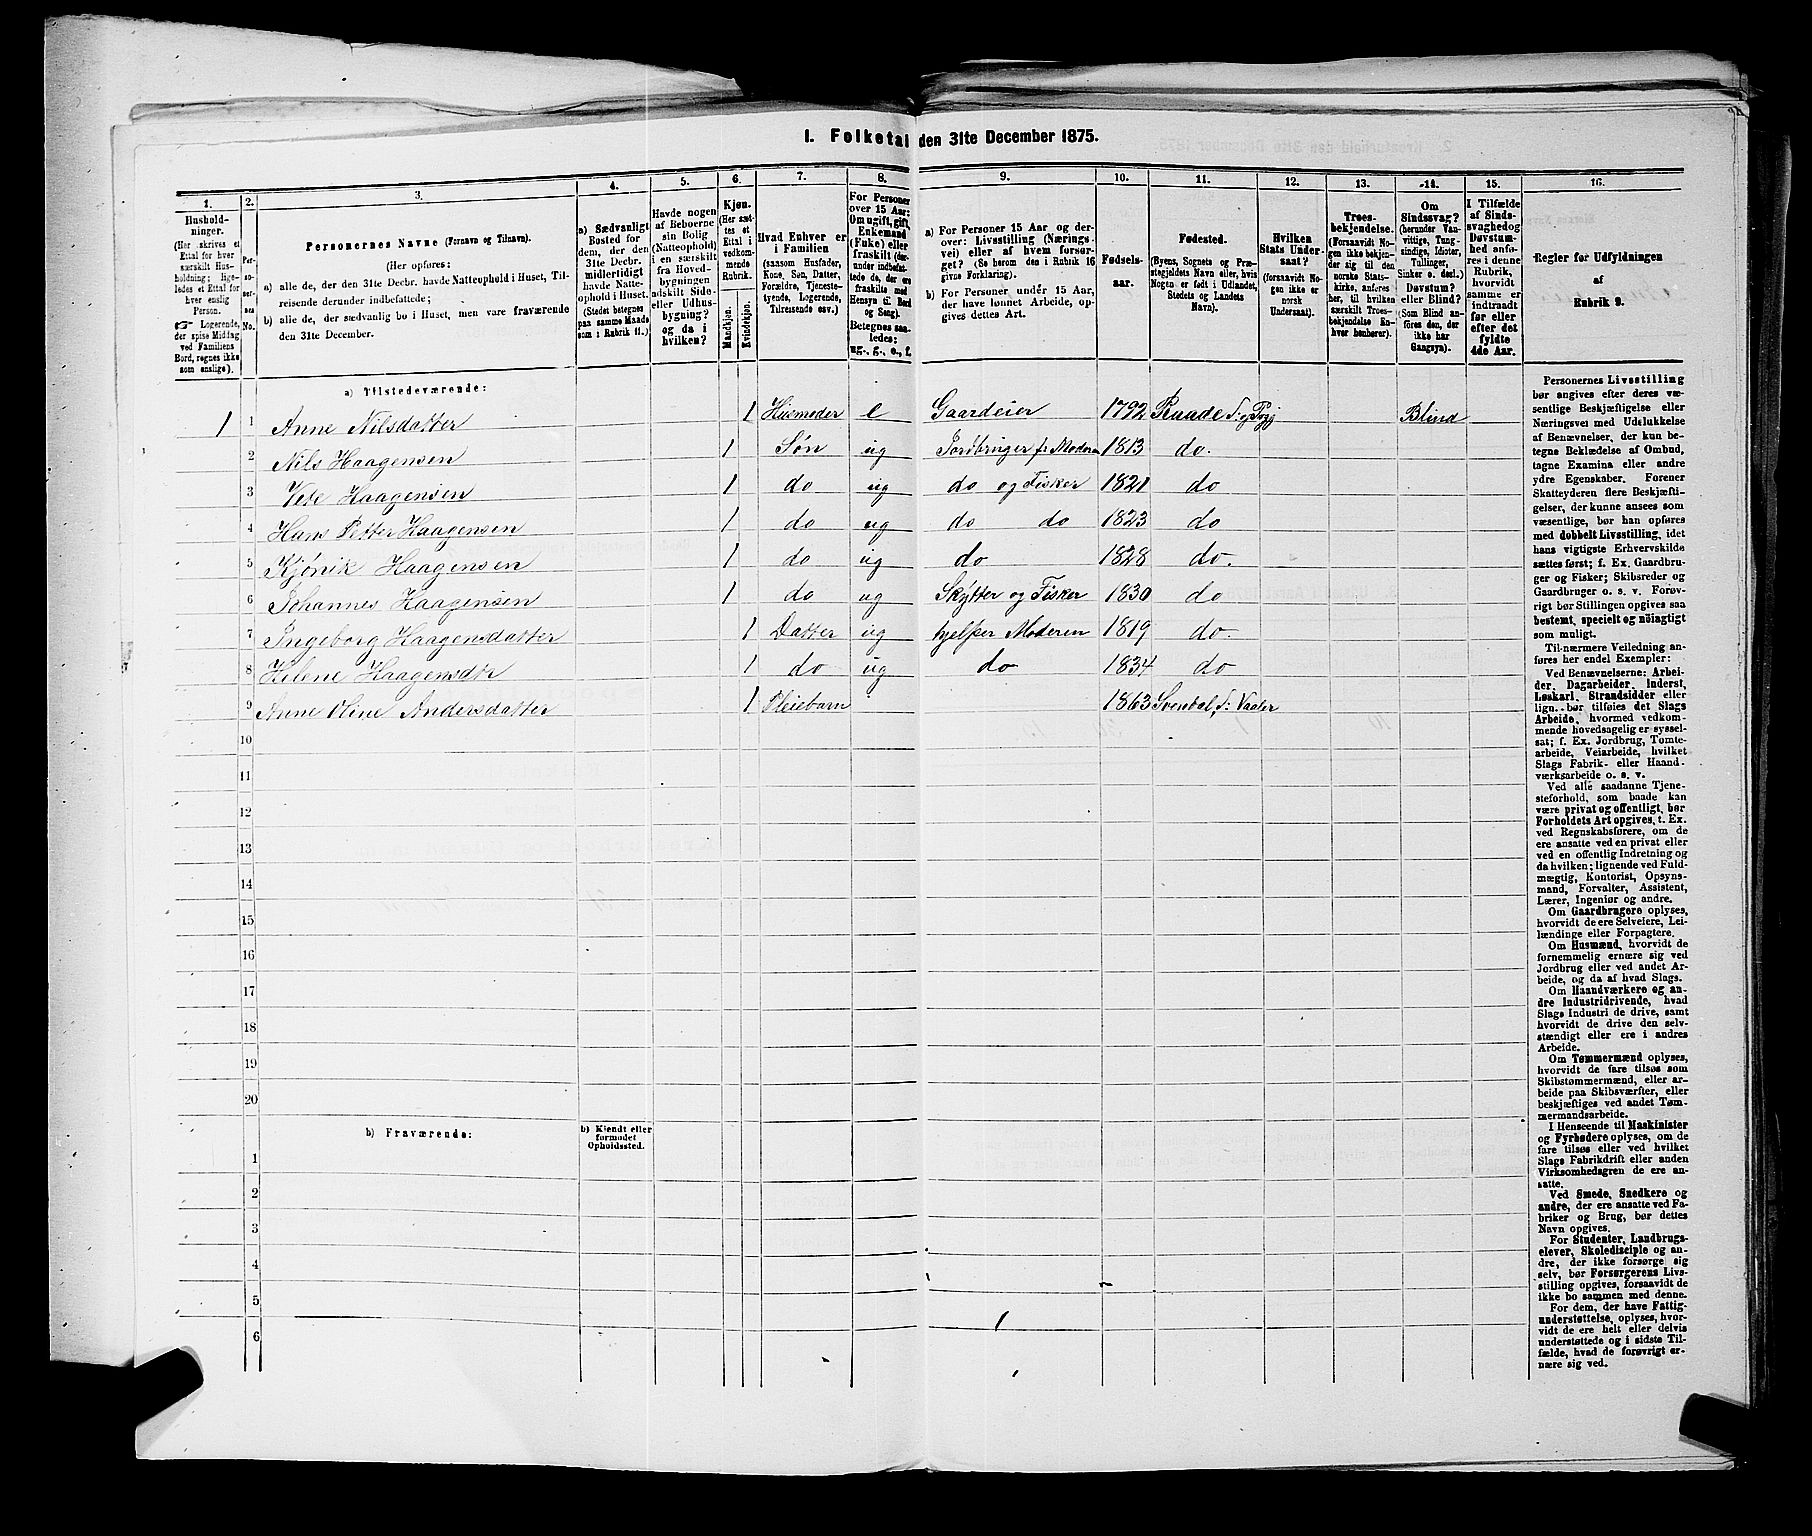 I. Folketal den 31te December 1875.
1.
Hushold-
ninger.
(Her skrives et
Ettal for hver
særskilt Hus-
holdning; lige-
ledes et Ettal for
hver enslig
Person.
☞ Logerende,
der spise Middag
ved Familiens
Bord, regnes ikke
som enslige).
2.
Per-
so-
ner-
nes
No.
3.
Personernes Navne (Fornavn og Tilnavn).
(Her opføres:
a) alle de, der den 31te Decbr. havde Natteophold i Huset, Til-
reisende derunder indbefattede;
b) alle de, der sædvanlig bo i Huset, men vare fraværende
den 31te December.
4.
a) Sædvanligt
Bosted for
dem, der den
31te Decbr.
midlertidigt
havde Natte-
ophold i Huset.
(Stedet betegnes
paa samme Maade
som i Rubrik 11.)
5.
Havde nogen
af Beboerne
sin Bolig
(Natteophold)
i en særskilt
fra Hoved-
bygningen
adskilt Side-
eller Udhus-
bygning?
og da i
hvilken?
6.
Kjøn.
(Her sæt-
tes et
Ettal i
vedkom-
mende
Rubrik.
Mandkjøn.
Kvindekjøn.
7.
Hvad Enhver er
i Familien
(saasom Husfader,
Kone, Søn, Datter,
Forældre, Tjeneste-
tyende, Logerende,
Tilreisende osv.)
8.
For Personer
over 15 Aar:
Om ugift, gift,
Enkemand
(Enke) eller
fraskilt (der-
under indbefat-
tede de, der ere
fraskilte med
Hensyn til Bord
og Seng).
Betegnes saa-
ledes:
ug., g., e., f.
9.
a) For Personer 15 Aar og der-
over: Livsstilling (Nærings-
vei) eller af hvem forsør-
get? (Se herom den i Rubrik 16
givne Forklaring).
b) For Personer under 15 Aar,
der have lønnet Arbeide, op-
gives dettes Art.
10.
Fødsels-
aar.
11.
Fødested.
(Byens, Sognets og Præ-
stegjeldets Navn eller, hvis
Nogen er født i Udlandet,
Stedets og Landets
Navn).
12.
Hvilken
Stats Under-
saat?
(forsaavidt No-
gen ikke er
norsk
Undersaat).
13.
Troes-
bekjendelse.
(Forsaavidt No-
gen ikke bekjen-
der sig til den
norske Stats-
kirke, anføres
her, til hvilken
særskilt Troes-
bekjendelse En-
hver henhører).
14.
Om
Sindssvag?
(herunder Van-
vittige, Tung-
sindige, Idioter,
Tullinger,
Sinker o. desl.)
Døvstum?
eller Blind?
(Som Blind an-
føres den, der
ikke har
Gangsyn).
15.
I Tilfælde
af Sinds-
svaghed og
Døvstum-
hed anfø-
res i denne
Rubrik,
hvorvidt
samme er
indtraadt
før eller
efter det
fyldte
4de Aar.
16.
Regler for Udfyldningen
af
Rubrik 9.
a) Tilstedeværende:
1 1 Anne Nilsdatter 1 Husmoder e Gaardeier 1792 Raade Blind
2 Nils Haagensen 1 Søn ug Jordbruger f. Moderen 1813 do.
3 Vete Haagensen 1 do ug do og Fisker 1821 do
4 Hans Petter Haagensen 1 do ug do do 1823 do
5 Kjønik Haagensen 1 do ug do 1828 do.
6 Johannes Haagensen 1 do ug Skytter og Fisker 1830 do
7 Ingeborg Haagensdatter 1 Datter ug hjelper Moderen 1819 do.
8 Helene Haagensdtr 1 do ug do 1834 do
9 Anne Oline Andersdatter 1 Pleiebarn 1863 Svendal, S: Vaaler
10
11
12
13
14
15
16
17
18
19
20
b) Fraværende:
b) Kjendt eller
formodet
Opholdssted.
1
2
3
4
5
6
Personernes Livsstilling
bør angives efter deres væ-
sentlige Beskjæftigelse eller
Næringsvei med Udelukkelse
af Benævnelser, der kun be-
tegne Beklædelse af Ombud,
tagne Examina eller andre
ydre Egenskaber. Forener
Skatteyderen flere Beskjæfti-
gelser, der kunne ansees som
væsentlige, bør han opføres
med dobbelt Livsstilling, idet
hans vigtigste Erhvervskilde
sættes først; f. Ex. Gaardbru-
ger og Fisker; Skibsreder og
Gaardbruger o. s. v. Forøv-
rigt bør Stillingen opgives saa
bestemt, specielt og nöiagtigt
som muligt.
Til nærmere Veiledning an-
føres her endel Exempler:
Ved Benævnelserne: Arbei-
der, Dagarbeider, Inderst,
Løskarl, Strandsidder eller
lign. bør tilføies det Slags
Arbeide, hvormed vedkom-
mende hovedsagelig er syssel-
sat; f. Ex. Jordbrug, Tomte-
arbeide, Veiarbeide, hvilket
Slags Fabrik- eller Haand-
værksarbeide o. s. v.
Ved alle saadanne Tjene-
steforhold, som baade kan
være privat og offentligt, bør
Forholdets Art opgives, t. Ex.
ved Regnskabsførere, om de
ere ansatte ved en privat eller
ved en offentlig Indretning og
da hvilken; lignende ved Fuld-
mægtig, Kontorist, Opsyns-
mand, Forvalter, Assistent,
Lærer, Ingeniør og andre.
Om Gaardbrugere oplyses,
hvorvidt de ere Selveiere, Lei-
lændinge eller Forpagtere.
Om Husmænd, hvorvidt de
fornemmelig ernære sig ved
Jordbrug eller ved andet Ar-
beide, og da af hvad Slags.
Om Haandværkere og an-
dre Industridrivende, hvad
Slags Industri de drive, samt
hvorvidt de drive den selv-
stændigt eller ere i andres
Arbeide.
Om Tømmermænd oplyses,
hvorvidt de fare tilsøs som
Skibstømmermænd, eller ar-
beide paa Skibsværfter, eller
beskjæftiges ved andet Tøm-
mermandsarbeide.
I Henseende til Maskinister
og Fyrbødere oplyses, om de
fare tilsøs eller ved hvilket
Slags Fabrikdrift eller anden
Virksomhedsgren de ere an-
satte.
Ved Smede, Snedkere og
andre, der ere ansatte ved Fa-
briker og Brug, bør dettes
Navn opgives.
For Studenter, Landbrugs-
elever, Skoledisciple og an-
dre, der ikke forsørge sig
selv, bør Forsørgerens Livs-
stilling opgives, forsaavidt de
ikke bo sammen med denne.
For dem, der have Fattig-
understøttelse, oplyses, hvor-
vidt de ere helt eller delvis
understøttede og i sidste Til-
fælde, hvad de forøvrigt er-
nære sig ved.